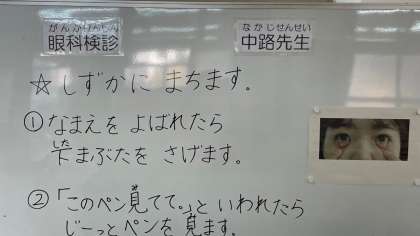 がんかけんしん
眼科検診
なかじせんせい
中路先生
☆しずかに まちます。
①なまえを よばれたら
した
下まぶたを さげます。
②「このペン見てて。」と いわれたら
じーっとペンを見ます。